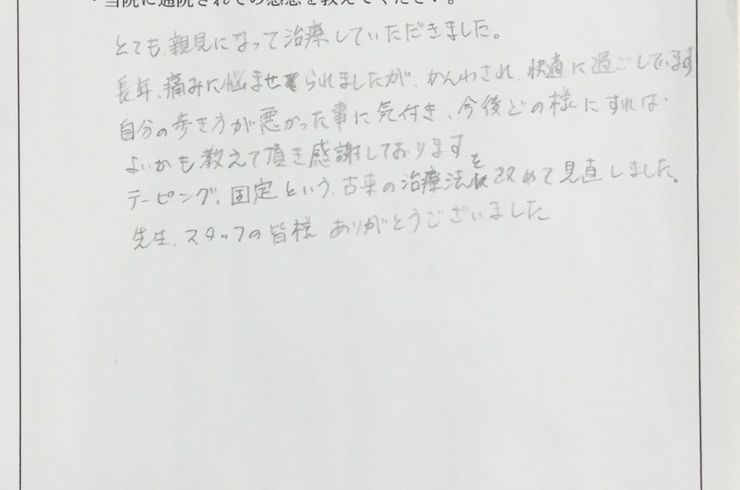 ・当院に通院されての感想を教えてください。
とても親見になって治療していただきました。
長年、痛みに悩ませられましたが、かんわされ、快適に過ごしています
自分の歩き方が悪かった事に気付き、今後どの様にすれば
よいかも教えて頂き感謝しております
テーピング、固定という、古来の治療法を改めて見直しました。
先生、スタッフの皆様 ありがとうございました